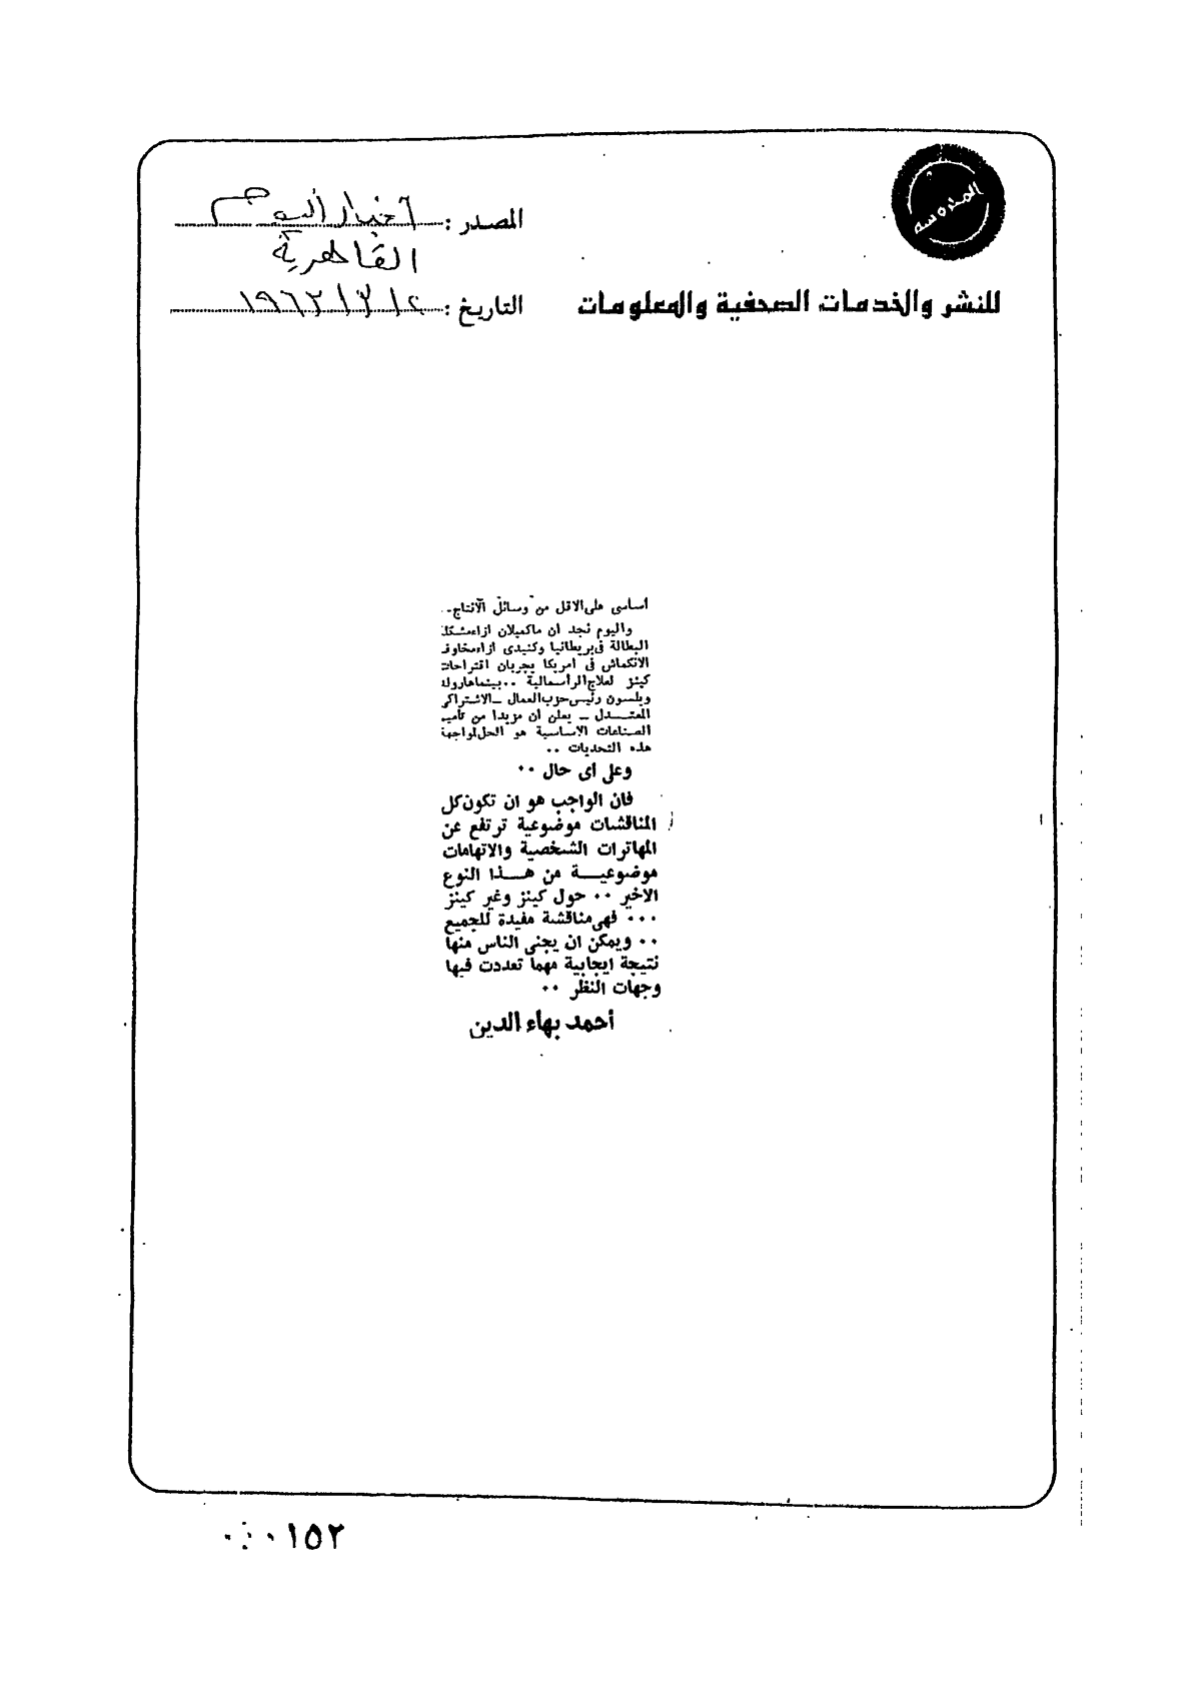 المحروسة
المصدر : اخبار اليوم
القاهرية
للنشر والخدمات الصحفية والمعلومات
التاريخ :
اساسى على الاقل من وسائل الانتاج ..
واليوم نجد ان ماكميلان ازاء مشكلة
البطالة فى بريطانيا وكنيدى ازاء مخاوف
الانكماش فى امريكا يجربان اقتراحات
كينز لعلاج الرأسمالية .. بينما هارولد
ويلسون رئيس حزب العمال ـ الاشتراكى
المعتدل ـ يعلن ان مزيدا من تأميم
الصناعات الاساسية هو الحل لمواجهة
هذه التحديات ..
وعلى اى حال ..
فان الواجب هو ان تكون كل
المناقشات موضوعية ترتفع عن
المهاترات الشخصية والاتهامات
موضوعية من هذا النوع
الاخير .. حول كينز وغير كينز
... فهى مناقشة مفيدة للجميع
.. ويمكن ان يجنى الناس منها
نتيجة ايجابية مهما تعددت فيها
وجهات النظر ..
أحمد بهاء الدين
٠١٥٢